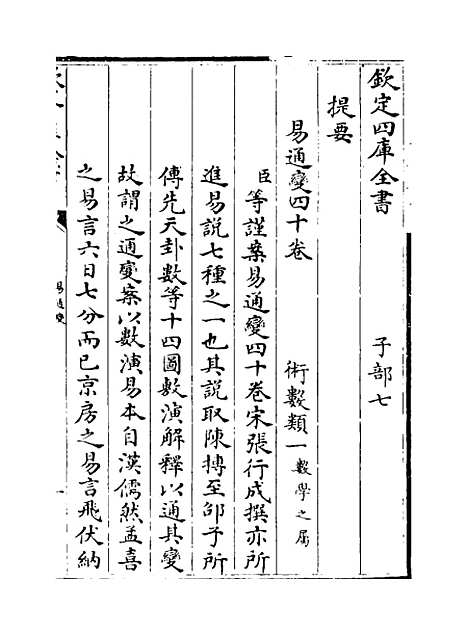 欽定四庫全書　子部七
提要　術數類一數學之屬
易通變四十卷
臣等謹案易通變四十卷宋張行成撰亦所
進易說七種之一也其說取陳摶至邵子所
傳先天卦數等十四圖敷演解釋以通其變
故謂之通變案以數演易本自漢儒然孟喜
之易言六日七分而已京房之易言飛伏納
易通變
一